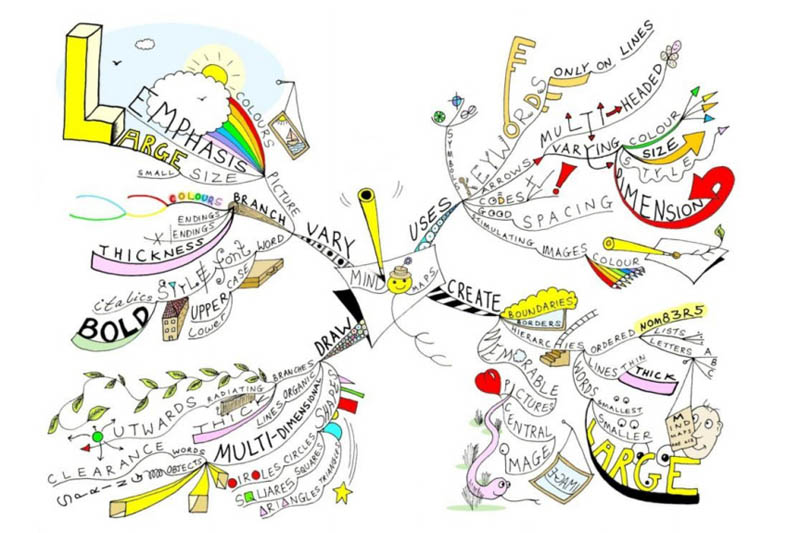 MIND
MAPS
VARY
PICTURE
EMPHASIS
COLOURS
LARGE
SMALL
SIZE
BRANCH
COLOURS
ENDINGS
ENDINGS
THICKNESS
WORD
font
STYLE
italics
BOLD
UPPER
CASE
Lower
USES
SYMBOLS
KEYWORDS
KEY
WORDES
ONLY ON LINES
ARROWS
MULTI-HEADED
VARYING
COLOUR
SIZE
STYLE
DIMENSION
CODES
GOOD
SPACING
STIMULATING
IMAGES
COLOUR
CREATE
BOUNDARIES
BORDERS
HIERARCHIES
ORDERED
NOM83R5
LISTS
LETTERS
A
B
C
LINES
THIN
THICK
WORDS
SMALLEST
SMALLER
LARGE
MIND
MAPS
MEMORABLE
PICTURES
CENTRAL
IMAGE
IMAGE
DRAW
BRANCHES
RADIATING
OUTWARDS
ORGANIC
LINES
THICK
MULTI-DIMENSIONAL
SHAPES
CIRCLES
CIRCLES
SQUARES
SQUARES
TRIANGLES
TRIANGLES
WORDS
CLEARANCE
OBJECTS
SPRING